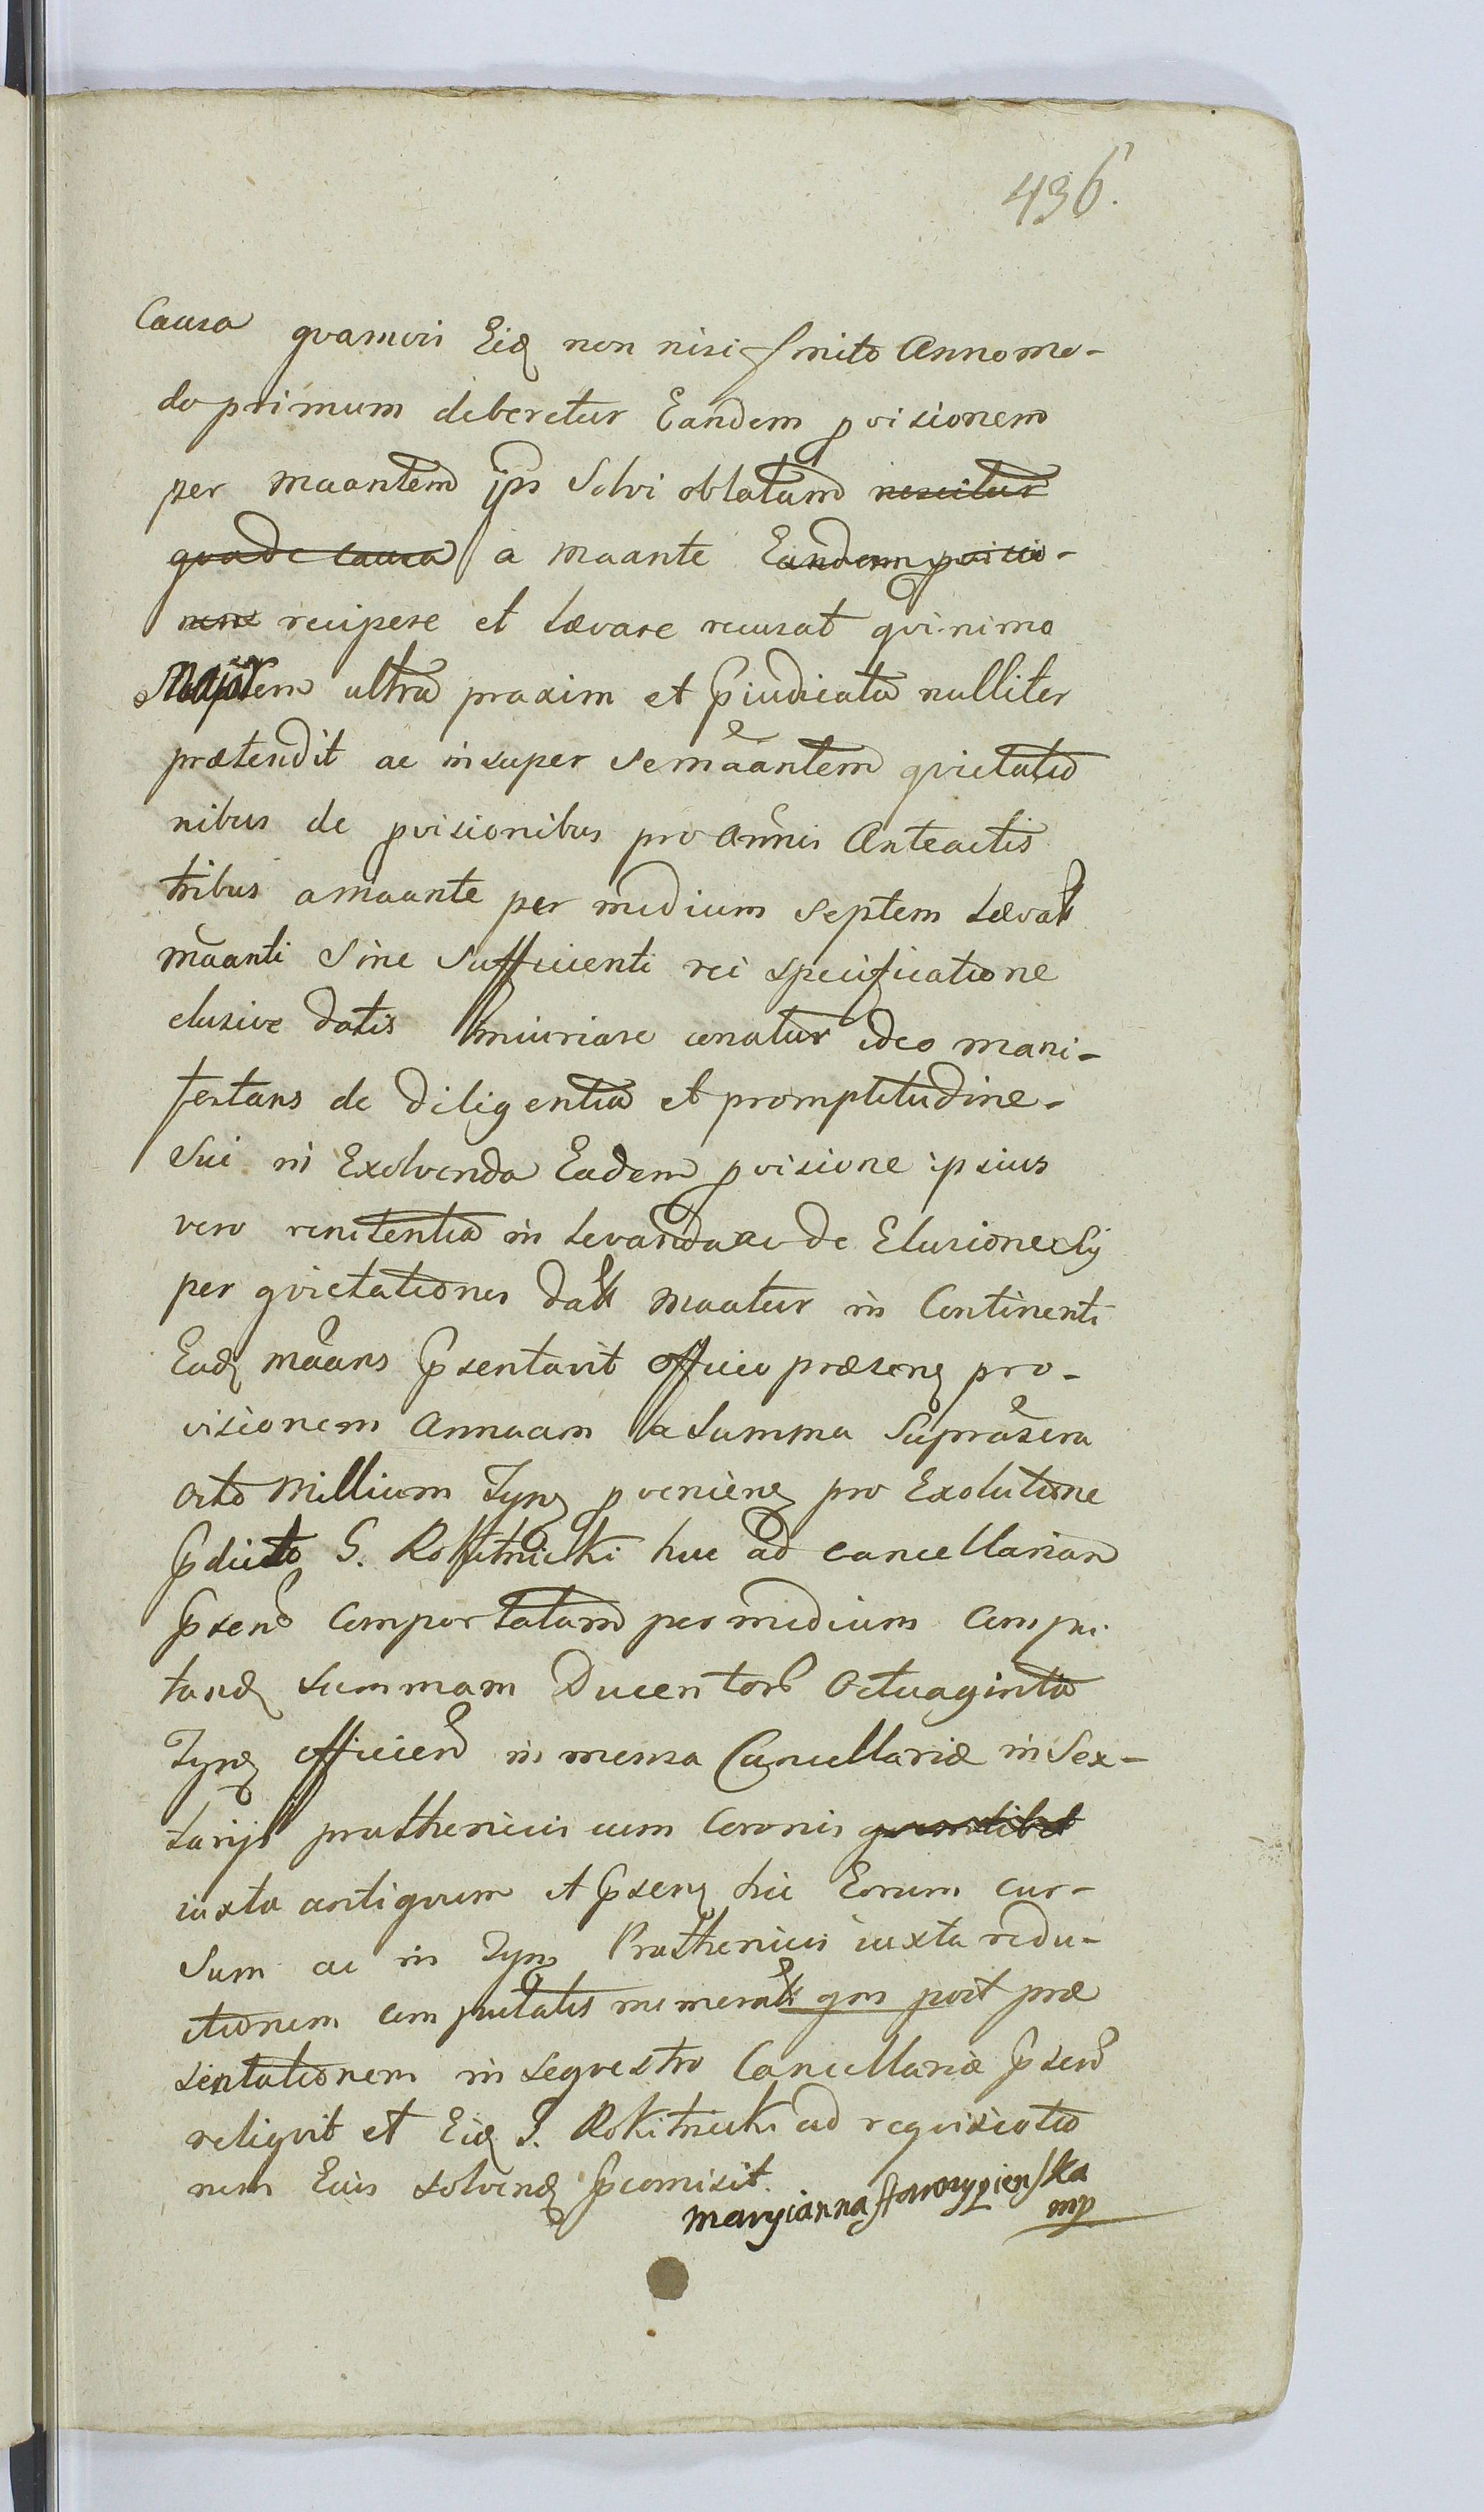 436.
Causa qvamvis Eid non nisi finito Anno mo-
do primum deberetur Eandem pvisionem
per maantem ips Solvi oblatam nescitur
qva de causa a maante Eandem pvisio-
nem recipere et Levare recusat qvinimo
Majorem ultra praxim et Pjudicata nulliter
prætendit ac insuper se maantem qvietatio
nibus de pvisionibus pro Annis Anteactis
tribus a maante per medium septem Levat
maanti Sine Sufficienti rei specificatione
elusive datis iniuriare conatur ideo mani-
festans de Diligentia et promptitudine
Sui in Exolvenda Eadem pvisione ipsius
vero renitentia in Levanda ac de Elusione
per qvietationes datt maatur in Continenti
Ead maans Psentavit officio præsen pro-
visionem Annuam a Summa Supra
octo Millium Tynf pvenien pro Exolutione
Pdicto G. Rokitnicki huc ad Cancellariam
Psen Comportatam per medium Compu
tand Summam Ducentor Octuaginta
Tynf efficien in mensa Cancellariæ in Sex-
tarijs pruthenicis cum Coronis qvantitet
iuxta antiqvum et Psen hic Eorum cur-
Sum ac in Tynf Pruthenicis iuxta redu-
ctionem computatis numerat qm post præ
sentationem in seqvestro Cancellariæ Psen
reliqvit et Eid G. Rokitnicki ad reqvisitio
nem Eius Solvend Pcomisit.
Maryianna
mp